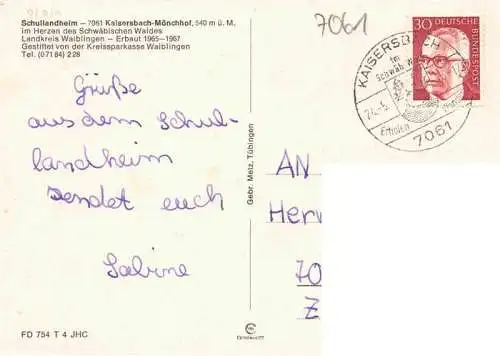 Schullandheim – 7061 Kaisersbach-Mönchhof, 540 m ü. M.
im Herzen des Schwäbischen Waldes
Landkreis Waiblingen – Erbaut 1965–1967
Gestiftet von der Kreissparkasse Waiblingen
Tel. (07184) 228
7061
30 DEUTSCHE
BUNDESPOST
KAISERSBACH
im
schwäb. Wa
Erholen
7061
Grüße
aus dem Schul-
landheim
sendet euch
Sabine
Gebr. Metz, Tübingen
AN
Her
70
Z
FD 754 T 4 JHC